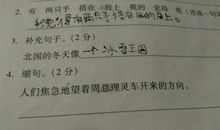 2. 有 两只手 搭在 肩上 我的 觉得 我(连成一句
我觉得有两只手搭在我的肩上。
3. 补充句子。(2分)
北国的冬天像一个冰雪王国
4. 缩句。(2分)
人们焦急地望着周总理灵车开来的方向。